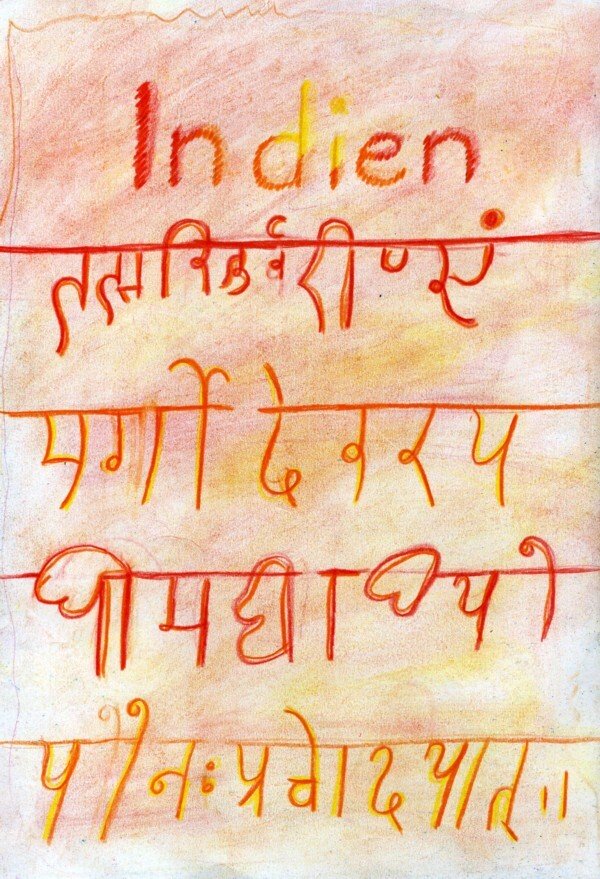 Indien
तत्सवितुर्वरीण्यं
मर्गो देवस्य
यो नः प्रचोदयात् ॥